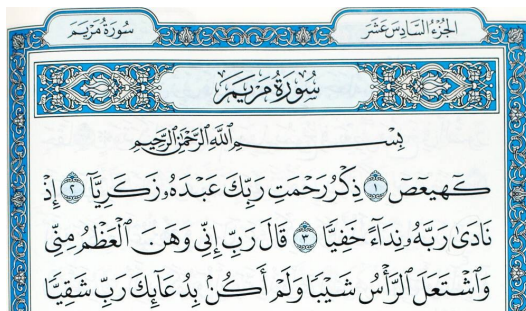 الجُزْءُ السَّادِسَ عَشَرَ سُورَةُ مَرْيَمَ
سُورَةُ مَرْيَمَ
بِسْمِ اللَّهِ الرَّحْمَٰنِ الرَّحِيمِ
كٓهيعٓصٓ ١ ذِكْرُ رَحْمَتِ رَبِّكَ عَبْدَهُۥ زَكَرِيَّآ ٢ إِذْ
نَادَىٰ رَبَّهُۥ نِدَآءً خَفِيًّا ٣ قَالَ رَبِّ إِنِّى وَهَنَ ٱلْعَظْمُ مِنِّى
وَٱشْتَعَلَ ٱلرَّأْسُ شَيْبًا وَلَمْ أَكُنۢ بِدُعَآئِكَ رَبِّ شَقِيًّا